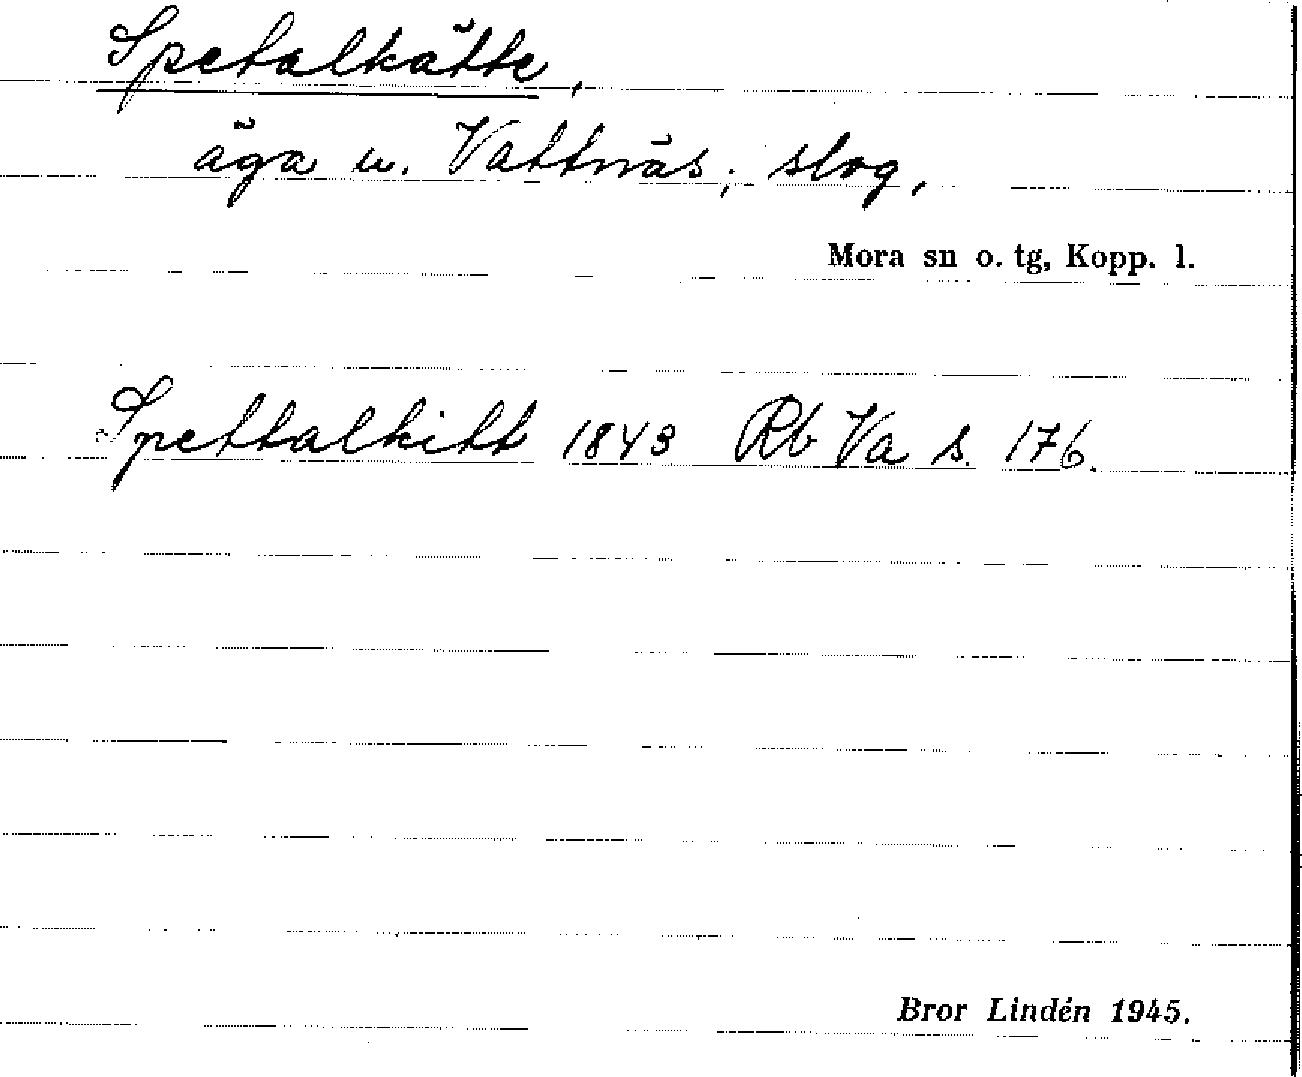 Spetalkätte,
äga u. Vattnäs; slog.
Mora sn o. tg, Kopp. l.
Spettalkitt 1843 Rb Va s. 176.
Bror Lindén 1945.